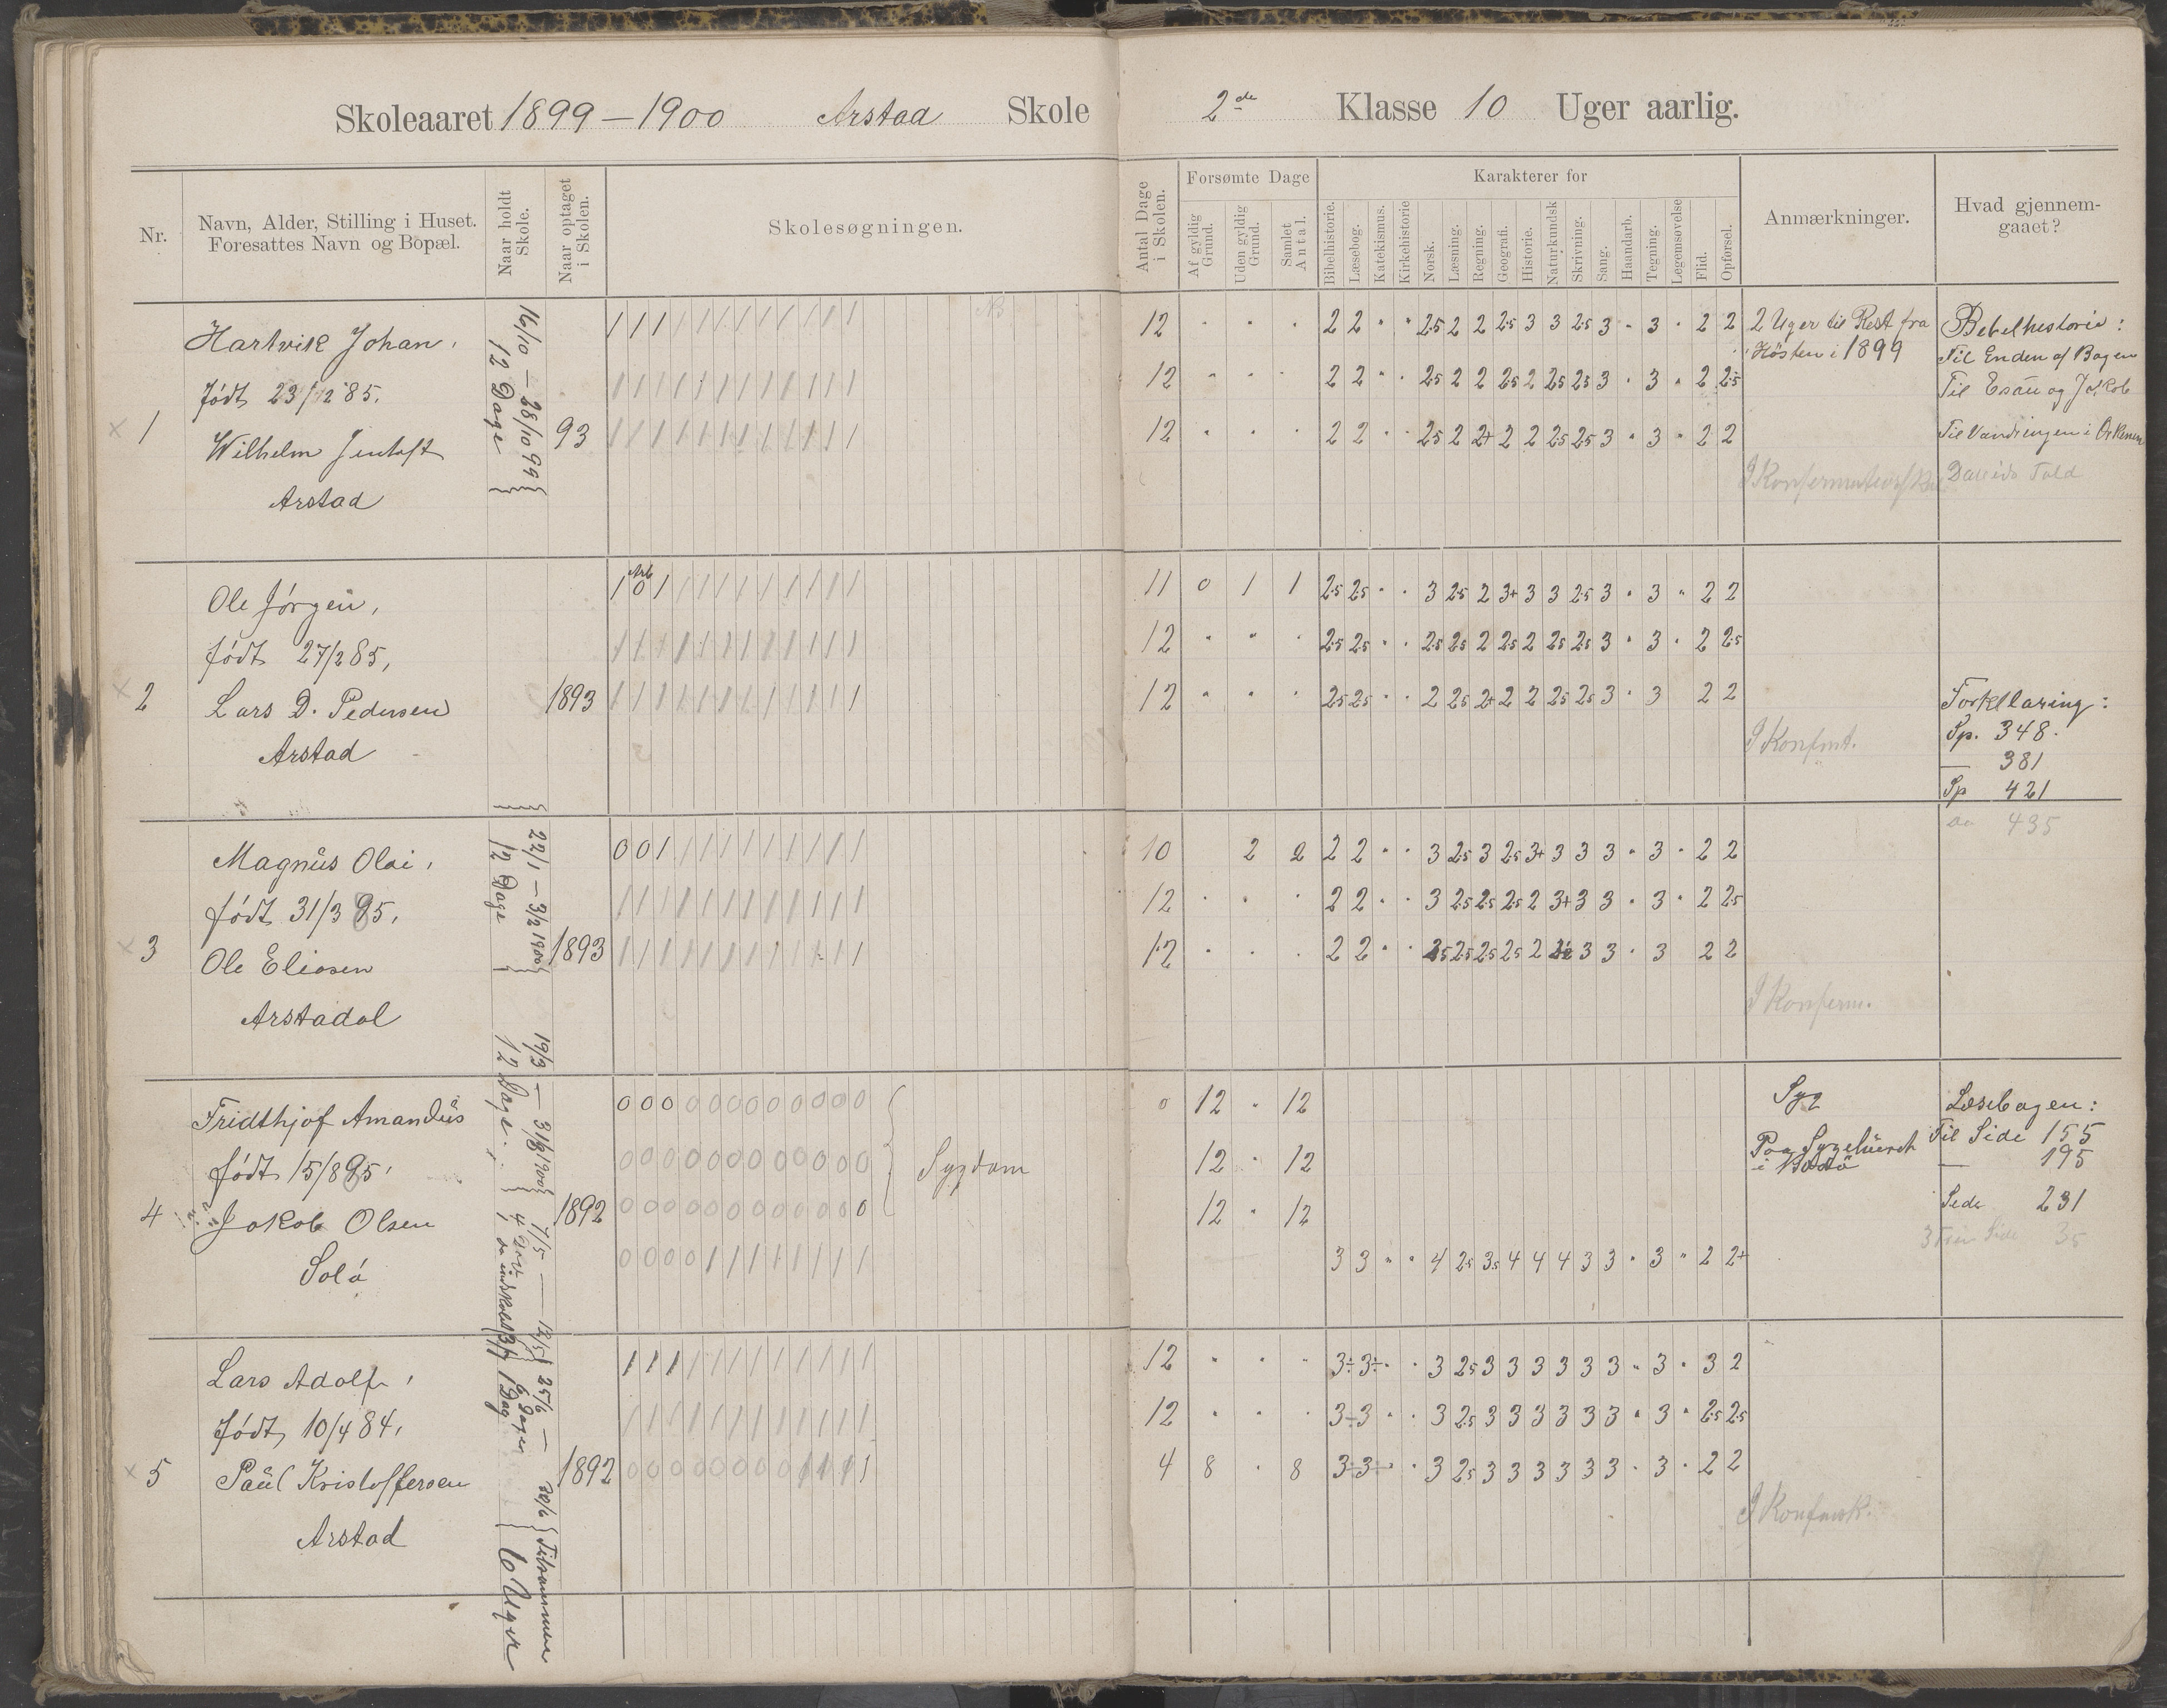 Skoleaaret 1899 – 1900 Arstad Skole
2de Klasse 10 Uger aarlig.
Nr.
Navn, Alder, Stilling i Huset.
Foresattes Navn og Bopæl.
Naar holdt Skole.
Naar optaget i Skolen.
Skolesøgningen.
Antal Dage i Skolen.
Forsømte Dage
Af gyldig Grund.
Uden gyldig Grund.
Samlet Antal.
Karakterer for
Bibelhistorie.
Læsebog.
Katekismus.
Kirkehistorie
Norsk.
Læsning.
Regning.
Geografi.
Historie.
Naturkundsk
Skrivning.
Sang.
Haandarb.
Tegning.
Legemsøvelse
Flid.
Opførsel.
Anmærkninger.
Hvad gjennem-
gaaet?
16/10 – 28/10 99
12 Dage
22/1 – 3/2 1900
12 Dage
19/3 – 31/3 1900
12 Dage
7/5 – 12/5
25/6 – 30/6
6 Dage
1 Dag
Tilsammen
10 Uger
1
Hartvik Johan,
født 23/12 85.
Wilhelm Jentoft
Arstad
93
1 1 1 / / / / / / / / /
/ / / / / / / / / / / /
/ / / / / / / / / / / /
12 " " " 2 2 " " 2.5 2 2 2.5 3 3 2.5 3 " 3 " 2 2
12 " " " 2 2 " " 2.5 2 2 2.5 2 2.5 2.5 3 " 3 " 2 2.5
12 " " " 2 2 " " 2.5 2 2+ 2 2 2.5 2.5 3 " 3 " 2 2
2 Uger til Rest fra
Høsten i 1899
Bebelhestorie:
Til Enden af Bogen
Til Esau og Jakob
Til Vandringen i Ørkenen
Davids Fald
2
Ole Jørgen,
født 27/2 85,
Lars D. Pedersen
Arstad
1893
Arb
1 0 1 / / / / / / / / /
/ / / / / / / / / / / /
/ / / / / / / / / / / /
11 0 1 1 2.5 2.5 " " 3 2.5 2 3+ 3 3 2.5 3 " 3 " 2 2
12 " " " 2.5 2.5 " " 2.5 2.5 2 2.5 2 2.5 2.5 3 " 3 " 2 2.5
12 " " " 2.5 2.5 " " 2 2.5 2+ 2 2 2.5 2.5 3 " 3 2 2
I Konfmt.
Forkllaring:
Sp. 348.
— 381
Sp 421
435
3
Magnus Olai,
født 31/3 85,
Ole Eliasen
Arstadal
1893
0 0 1 / / / / / / / / /
/ / / / / / / / / / / /
/ / / / / / / / / / / /
10 2 2 2 2 " " 3 2.5 3 2.5 3+ 3 3 3 " 3 " 2 2
12 " " " 2 2 " " 3 2.5 2.5 2.5 2 3+ 3 3 " 3 " 2 2.5
12 " " " 2 2 " " 2.5 2.5 2.5 2.5 2 3 3 " 3 2 2
I Konferm.
4
Fridthjof Amandus
født 15/8 85,
Jakob Olsen
Solø
1892
0 0 0 0 0 0 0 0 0 0 0 0
0 0 0 0 0 0 0 0 0 0 0 0
0 0 0 0 0 0 0 0 0 0 0 0
0 0 0 0 / / / / / / / /
Sygdom
0 12 " 12
12 " 12
12 " 12
3 3 " " 4 2.5 3.5 4 4 4 3 3 " 3 " 2 2+
Syg
Paa Sygehuset
i Bodø
Læsebogen:
Til Side 155
— 195
Side 231
Side 35
5
Lars Adolf,
født 10/4 84,
Paul Kristoffersen
Arstad
1892
1 1 1 / / / / / / / / /
/ / / / / / / / / / / /
0 0 0 0 0 0 0 0 1 1 1 1
12 " " " 3÷ 3÷ " " 3 2.5 3 3 3 3 3 3 " 3 " 3 2
12 " " " 3÷ 3 " " 3 2.5 3 3 3 3 3 3 " 3 " 2.5 2.5
4 8 " 8 3÷ 3÷ " " 3 2.5 3 3 3 3 3 3 " 3 " 2 2